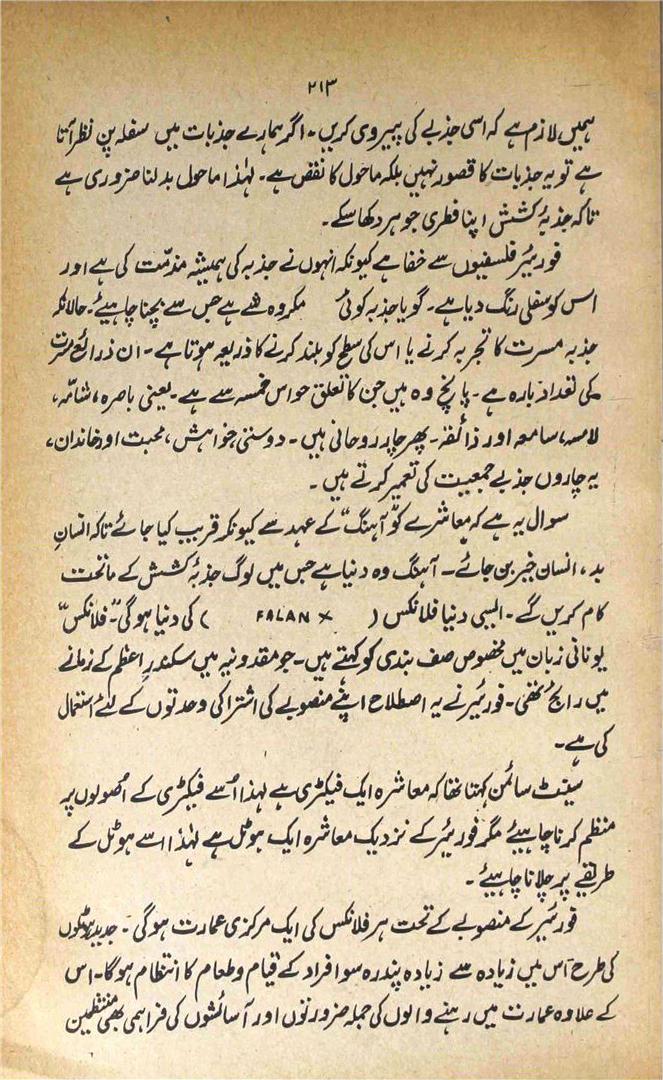 ۲۱۳
ہمیں لازم ہے کہ اسی جذبے کی پیروی کریں۔ اگر ہمارے جذبات میں سفلہ پن نظر آتا
ہے تو یہ جذبات کا قصور نہیں بلکہ ماحول کا نقص ہے۔ لہٰذا ماحول بدلنا ضروری ہے
تاکہ جذبۂ کشش اپنا فطری جوہر دکھا سکے۔
فورئیر فلسفیوں سے خفا ہے کیونکہ انہوں نے جذبہ کی ہمیشہ مذمّت کی ہے اور
اس کو سفلی رنگ دیا ہے۔ گویا جذبہ کوئی مکروہ شے ہے جس سے بچنا چاہیئے۔ حالانکہ
جذبہ مسرت کا تجربہ کرنے یا اس کی سطح کو بلند کرنے کا ذریعہ ہوتا ہے۔ ان ذرائع مسرت
کی تعداد بارہ ہے۔ پانچ وہ ہیں جن کا تعلق حواس خمسہ سے ہے۔ یعنی باصرہ، شامّہ،
لامسہ، سامعہ اور ذائقہ۔ پھر چار روحانی ہیں۔ دوستی، خواہش، محبت اور خاندان،
یہ چاروں جذبے جمعیت کی تعمیر کرتے ہیں۔
سوال یہ ہے کہ معاشرے کو "آہنگ" کے عہد سے کیونکر قریب کیا جائے تاکہ انسانِ
بد، انسان خیر بن جائے۔ آہنگ وہ دنیا ہے جس میں لوگ جذبۂ کشش کے ماتحت
کام کریں گے۔ ایسی دنیا فلانکس (FALANX) کی دنیا ہوگی۔ "فلانکس"
یونانی زبان میں مخصوص صف بندی کو کہتے ہیں۔ جو مقدونیہ میں سکندر اعظم کے زمانے
میں رائج تھی۔ فورئیر نے یہ اصطلاح اپنے منصوبے کی اشتراکی وحدتوں کے لئے استعمال
کی ہے۔
سینٹ سائمن کہتا تھا کہ معاشرہ ایک فیکٹری ہے لہٰذا اُسے فیکٹری کے اُصولوں پر
منظم کرنا چاہیئے مگر فورئیر کے نزدیک معاشرہ ایک ہوٹل ہے لہٰذا اسے ہوٹل کے
طریقے پر چلانا چاہیئے۔
فورئیر کے منصوبے کے تحت ہر فلانکس کی ایک مرکزی عمارت ہوگی۔ جدید ہوٹلوں
کی طرح اس میں زیادہ سے زیادہ پندرہ سو افراد کے قیام و طعام کا انتظام ہوگا۔ اس
کے علاوہ عمارت میں رہنے والوں کی جملہ ضرورتوں اور آسائشوں کی فراہمی بھی منتظمین